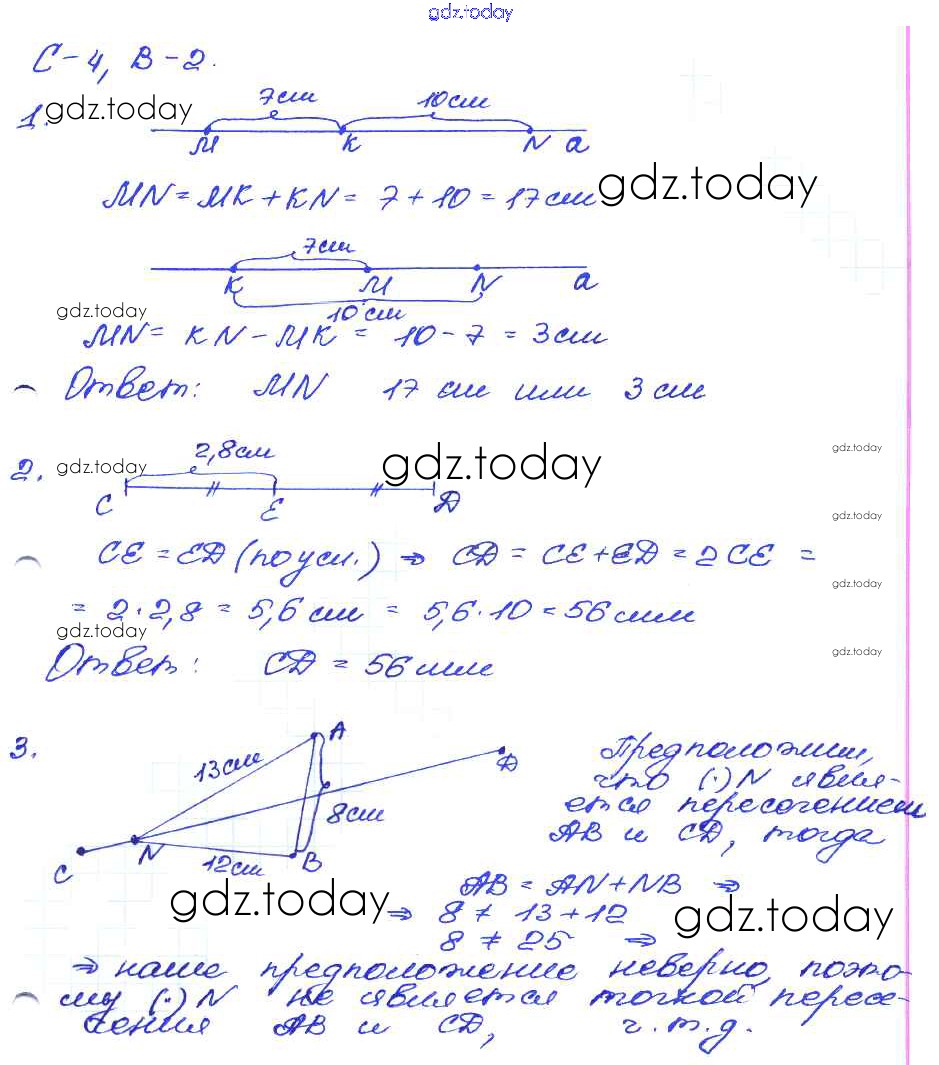 gdz.today
С-4, В-2.
1. gdz.today 7см 10см
M K N a
MN = MK + KN = 7 + 10 = 17см gdz.today
7см
K M N a
gdz.today 10 см
MN = KN - MK = 10 - 7 = 3см
Ответ: MN 17 см или 3 см
2. gdz.today 2,8см gdz.today gdz.today
C E D
gdz.today
CE = ED (по усл.) ⇒ CD = CE + ED = 2CE =
gdz.today
= 2 · 2,8 = 5,6 см = 5,6 · 10 = 56 мм
gdz.today
gdz.today
Ответ: CD = 56 мм
3. 13см A D 8см
C N 12см B
Предположим,
что (·) N явля-
ется пересечением
AB и CD, тогда
gdz.today AB = AN + NB ⇒
⇒ 8 ≠ 13 + 12 gdz.today
8 ≠ 25 ⇒
⇒ наше предположение неверно, поэто-
му (·) N не является точкой пересе-
чения AB и CD, ч.т.д.